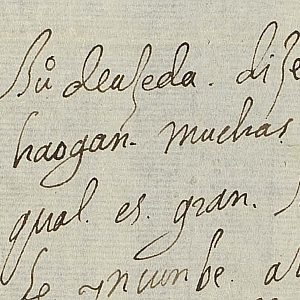 Bũ deuzeda. dize
haogan. muchas
qual. es. gran.
se yncunbe. a